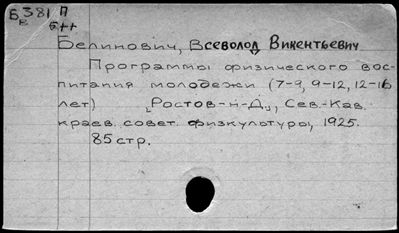 Б 381 П
в 6++
Белинович, Всеволод Викентьевич
Программы физического вос-
питания молодежи (7-9, 9-12, 12-16
лет) [Ростов-н-Д.], Сев.-Кав.
краев. совет. физкультуры, 1925.
85 стр.